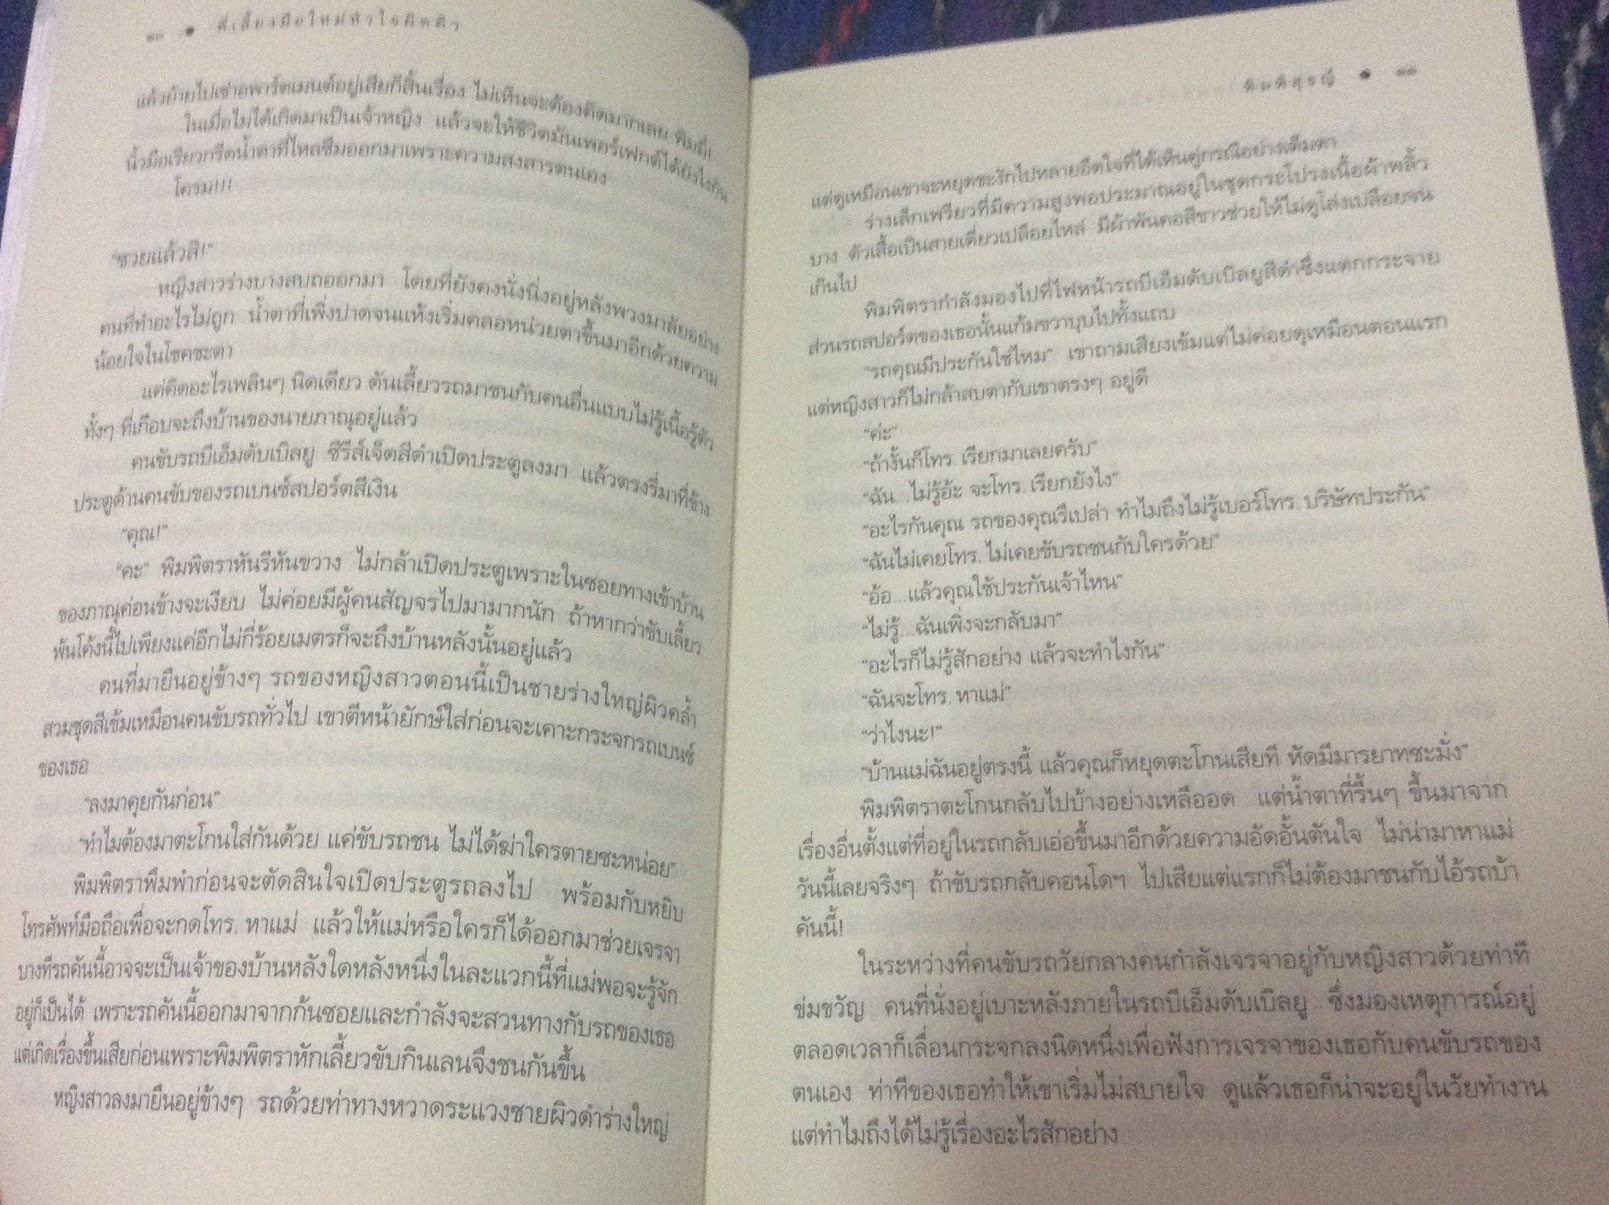 ๑๐ • พี่เลี้ยงมือใหม่หัวใจติดดิว
แล้วย้ายไปเช่าอพาร์ตเมนต์อยู่เสียก็สิ้นเรื่อง ไม่เห็นจะต้องคิดมากเลย พิมมี่!
ในเมื่อไม่ได้เกิดมาเป็นเจ้าหญิง แล้วจะให้ชีวิตมันเพอร์เฟกต์ได้ยังไงกัน
นิ้วมือเรียวกรีดน้ำตาที่ไหลซึมออกมาเพราะความสงสารตนเอง
โครม!!!
“ซวยแล้วสิ!”
หญิงสาวร่างบางสบถออกมา โดยที่ยังคงนั่งนิ่งอยู่หลังพวงมาลัยอย่าง
คนที่ทำอะไรไม่ถูก น้ำตาที่เพิ่งปาดจนแห้งเริ่มคลอหน่วยตาขึ้นมาอีกด้วยความ
น้อยใจในโชคชะตา
แค่คิดอะไรเพลินๆ นิดเดียว ดันเลี้ยวรถมาชนกับคนอื่นแบบไม่รู้เนื้อรู้ตัว
ทั้งๆ ที่เกือบจะถึงบ้านของนายภาณุอยู่แล้ว
คนขับรถบีเอ็มดับเบิลยู ซีรีส์เจ็ดสีดำเปิดประตูลงมา แล้วตรงรี่มาที่ข้าง
ประตูด้านคนขับของรถเบนซ์สปอร์ตสีเงิน
“คุณ!”
“คะ” พิมพิตราหันรีหันขวาง ไม่กล้าเปิดประตูเพราะในซอยทางเข้าบ้าน
ของภาณุค่อนข้างจะเงียบ ไม่ค่อยมีผู้คนสัญจรไปมามากนัก ถ้าหากว่าขับเลี้ยว
พ้นโค้งนี้ไปเพียงแค่อีกไม่กี่ร้อยเมตรก็จะถึงบ้านหลังนั้นอยู่แล้ว
คนที่มายืนอยู่ข้างๆ รถของหญิงสาวตอนนี้เป็นชายร่างใหญ่ผิวคล้ำ
สวมชุดสีเข้มเหมือนคนขับรถทั่วไป เขาตีหน้ายักษ์ใส่ก่อนจะเคาะกระจกรถเบนซ์
ของเธอ
“ลงมาคุยกันก่อน”
“ทำไมต้องมาตะโกนใส่กันด้วย แค่ขับรถชน ไม่ได้ฆ่าใครตายซะหน่อย”
พิมพิตราพึมพำก่อนจะตัดสินใจเปิดประตูรถลงไป พร้อมกับหยิบ
โทรศัพท์มือถือเพื่อจะกดโทร. หาแม่ แล้วให้แม่หรือใครก็ได้ออกมาช่วยเจรจา
บางทีรถคันนี้อาจจะเป็นเจ้าของบ้านหลังใดหลังหนึ่งในละแวกนี้ที่แม่พอจะรู้จัก
อยู่ก็เป็นได้ เพราะรถคันนี้ออกมาจากก้นซอยและกำลังจะสวนทางกับรถของเธอ
แต่เกิดเรื่องขึ้นเสียก่อนเพราะพิมพิตราหักเลี้ยวขับกินเลนจึงชนกันขึ้น
หญิงสาวลงมายืนอยู่ข้างๆ รถด้วยท่าทางหวาดระแวงชายผิวดำร่างใหญ่
• ๑๑
แต่ดูเหมือนเขาจะหยุดชะงักไปหลายอึดใจที่ได้เห็นคู่กรณีอย่างเต็มตา
ร่างเล็กเพรียวที่มีความสูงพอประมาณอยู่ในชุดกระโปรงเนื้อผ้าพลิ้ว
บาง ตัวเสื้อเป็นสายเดี่ยวเปลือยไหล่ มีผ้าพันคอสีขาวช่วยให้ไม่ดูโล่งเปลือยจน
เกินไป
พิมพิตรากำลังมองไปที่ไฟหน้ารถบีเอ็มดับเบิลยูสีดำซึ่งแตกกระจาย
ส่วนรถสปอร์ตของเธอนั้นแก้มขวาบุบไปทั้งแถบ
“รถคุณมีประกันใช่ไหม” เขาถามเสียงเข้มแต่ไม่ค่อยดุเหมือนตอนแรก
แต่หญิงสาวก็ไม่กล้าสบตากับเขาตรงๆ อยู่ดี
“ค่ะ”
“ถ้างั้นก็โทร. เรียกมาเลยครับ”
“ฉัน...ไม่รู้อ้ะ จะโทร. เรียกยังไง”
“อะไรกันคุณ รถของคุณรึเปล่า ทำไมถึงไม่รู้เบอร์โทร. บริษัทประกัน”
“ฉันไม่เคยโทร. ไม่เคยขับรถชนกับใครด้วย”
“อ้อ...แล้วคุณใช้ประกันเจ้าไหน”
“ไม่รู้...ฉันเพิ่งจะกลับมา”
“อะไรก็ไม่รู้สักอย่าง แล้วจะทำไงกัน”
“ฉันจะโทร. หาแม่”
“ว่าไงนะ!”
“บ้านแม่ฉันอยู่ตรงนี้ แล้วคุณก็หยุดตะโกนเสียที หัดมีมารยาทซะมั่ง”
พิมพิตราตะโกนกลับไปบ้างอย่างเหลืออด แต่น้ำตาที่รื้นๆ ขึ้นมาจาก
เรื่องอื่นตั้งแต่ที่อยู่ในรถกลับเอ่อขึ้นมาอีกด้วยความอัดอั้นตันใจ ไม่น่ามาหาแม่
วันนี้เลยจริงๆ ถ้าขับรถกลับคอนโดฯ ไปเสียแต่แรกก็ไม่ต้องมาชนกับไอ้รถบ้า
คันนี้!
ในระหว่างที่คนขับรถวัยกลางคนกำลังเจรจาอยู่กับหญิงสาวด้วยท่าที
ข่มขวัญ คนที่นั่งอยู่เบาะหลังภายในรถบีเอ็มดับเบิลยู ซึ่งมองเหตุการณ์อยู่
ตลอดเวลาก็เลื่อนกระจกลงนิดหนึ่งเพื่อฟังการเจรจาของเธอกับคนขับรถของ
ตนเอง ท่าทีของเธอทำให้เขาเริ่มไม่สบายใจ ดูแล้วเธอก็น่าจะอยู่ในวัยทำงาน
แต่ทำไมถึงได้ไม่รู้เรื่องอะไรสักอย่าง